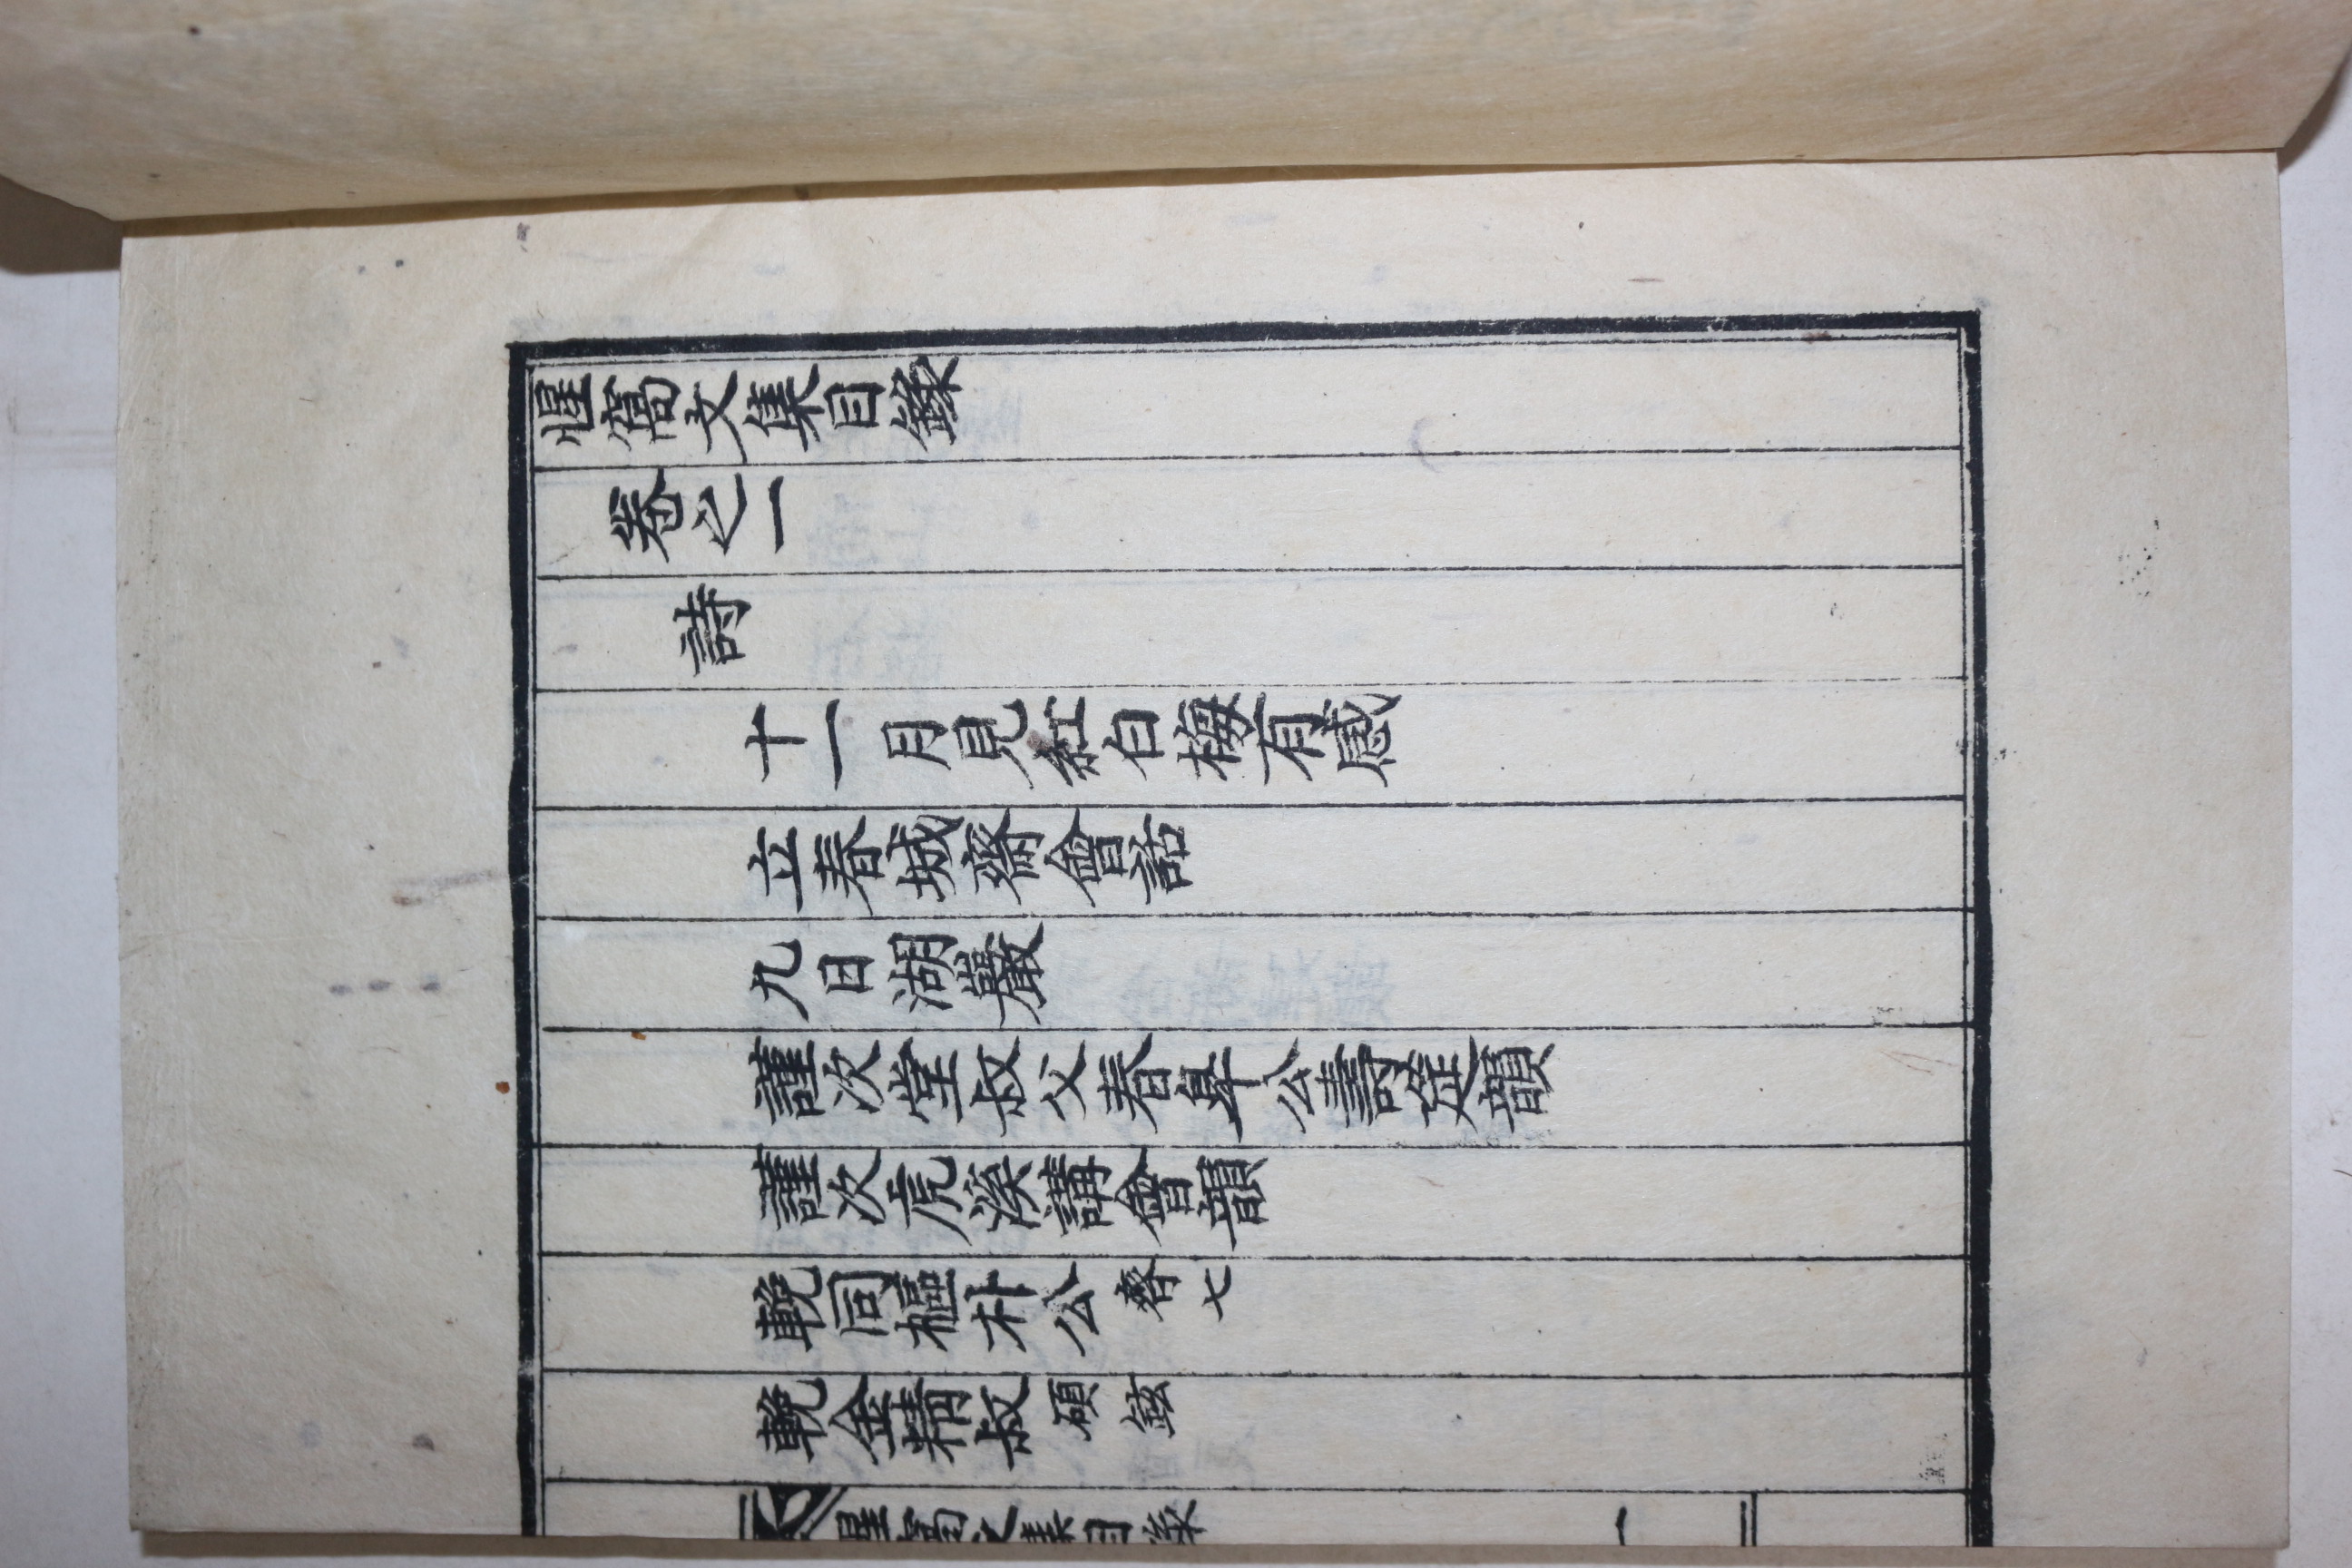 惺窩文集目錄
卷之一
詩
十一月見紅白梅有感
立春城齋會話
九日湖巖
謹次堂叔父春皐公壽筵韻
謹次虎溪講會韻
輓同樞朴公 七
輓金精叔 碩鉉
惺窩文集目錄 一